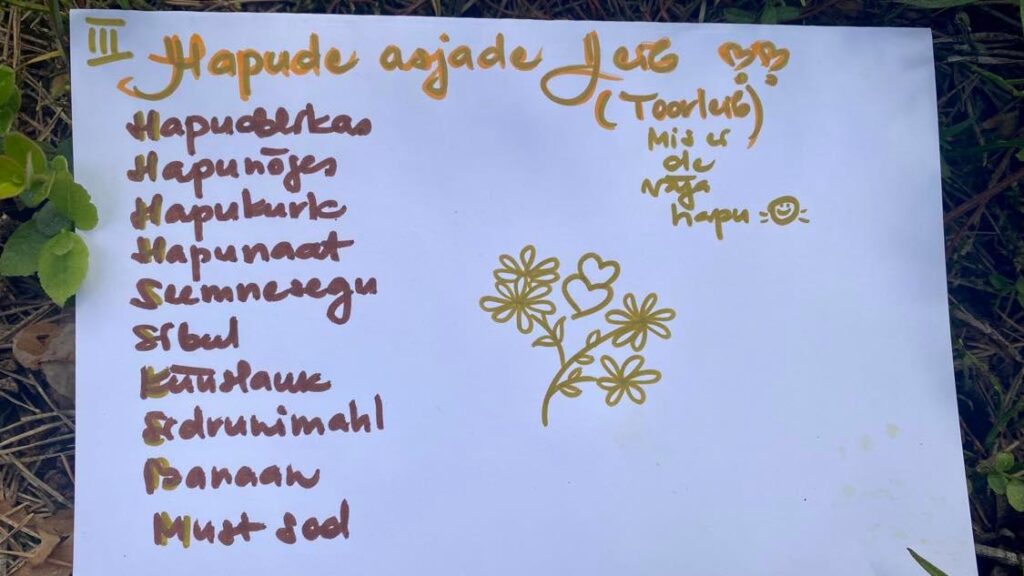 III
Hapude asjade Leib
(Toorleib)
Mis ei
ole
väga
hapu
Hapuoblikas
Hapunõges
Hapukurk
Hapunaat
Seemnesegu
Sibul
Küüslauk
Sidrunimahl
Banaan
Must sool